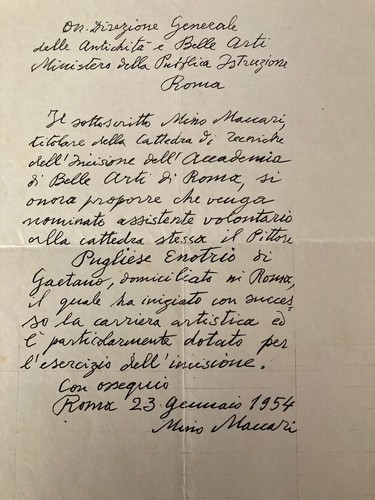 On. Direzione Generale
delle Antichità e Belle Arti
Ministero della Pubblica Istruzione
Roma
Il sottoscritto Mino Maccari,
titolare della Cattedra di Tecniche
dell'Incisione dell'Accademia
di Belle Arti di Roma, si
onora proporre che venga
nominato assistente volontario
alla cattedra stessa il Pittore
Pugliese Enotrio di
Gaetano, domiciliato in Roma,
il quale ha iniziato con succes-
so la carriera artistica ed
è particolarmente dotato per
l'esercizio dell'incisione.
Con ossequio
Roma 23 gennaio 1954
Mino Maccari